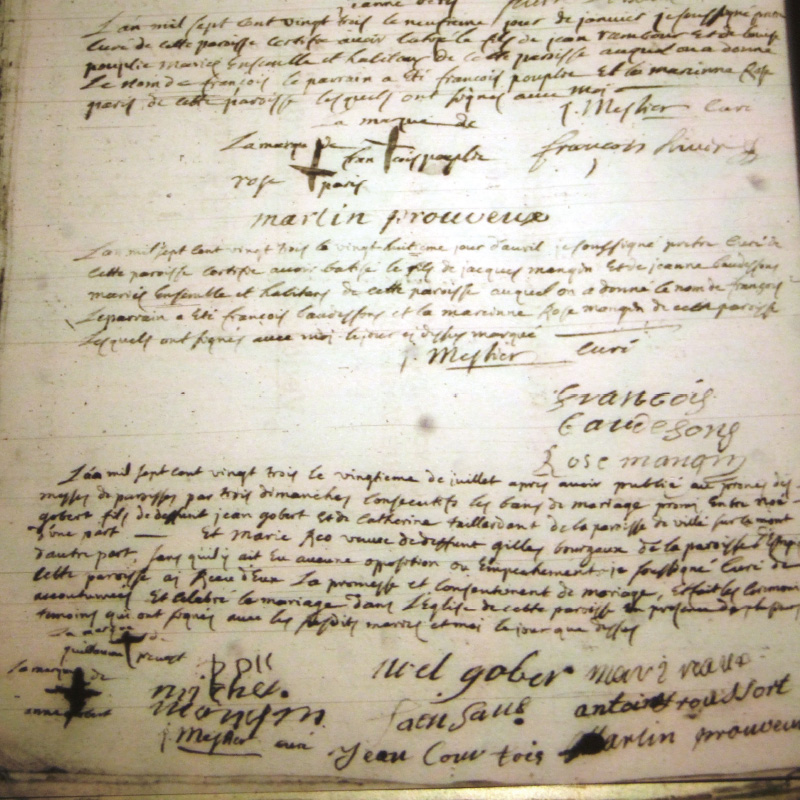 Lan mil sept cent vingt trois le neufieme jour de janvier je soussigné
curé de cette paroisse certifie avoir batisé le fils de jean rambour Et de
pouplie mariés Ensemble et habitans de cette paroisse auquel on a donné
Le nom de françois le parrain a Eté francois pouplie Et la marainne Rose
paris de cette paroisse lesquels ont signés avec moi
J. Meslier curé
La marque de
La marque de fran cois pouplie
françois
rose paris
martin prouveux
Lan mil sept cent vingt trois le vingt huitieme jour d'avril je soussigné pretre Curé de
cette paroisse certifie avoir batisé le fils de jacques mangin Et de jeanne baudessons
mariés Ensemble et habitans de cette paroisse auquel on a donné le nom de françois
Le parrain a Eté françois baudessons et la marainne Rose mangin de cette paroisse
Lesquels ont signés avec moi le jour cy dessus marqué
J. Meslier curé
François
baudesons
Rose mangin
Lan mil sept cent vingt trois le vingtieme de juillet apres avoir publié au prones des
messes de paroisses par trois dimanches consecutifs les bans de mariage promi Entre noel
gobert fils de deffunt jean gobert Et de Catherine taillardant de la paroisse de ville sur le mont
d'une part Et Marie Reo veuve de deffunt gilles bourgeaux de la paroisse
d'autre part, sans quil y ait Eu aucune opposition ou Empechement, je soussigné Curé de
cette paroisse ai Receu d'Eux La promesse et consentement de mariage, Et fait les ceremonies
accoutumées Et celebré le mariage dans l'Eglise de cette paroisse En presence de plusieurs
temoins qui ont signés avec les susdits mariés et moi le jour que dessus
La marque de
guillaume
La marque de
anne gobert
michel
mangin
J. Meslier curé
noel gober
Jean
Jean Courtois
antoine roussort
Martin prouveux